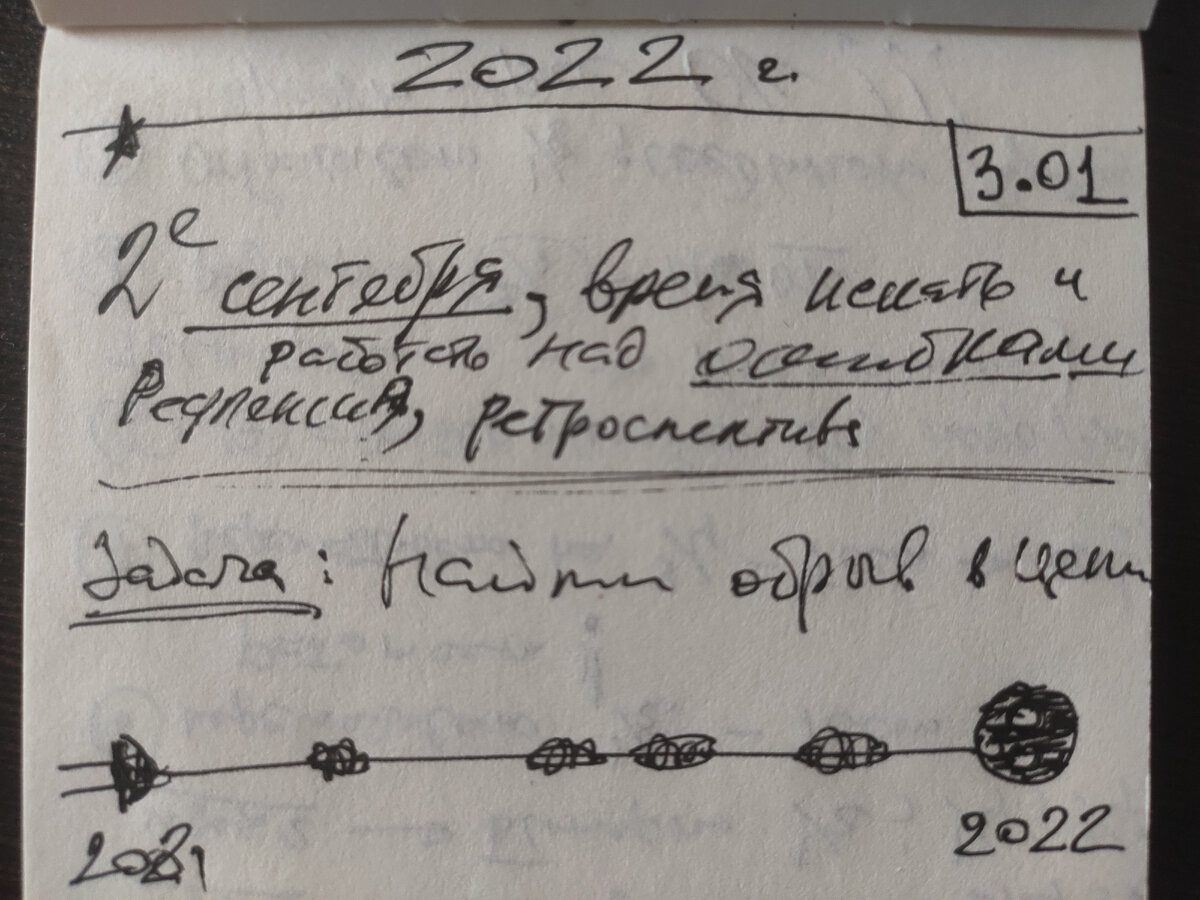 2022 г.
3.01
2е сентября, время искать и
работать над ошибками
Рефлексия, ретроспектива
Задача: Найти обрыв в цепи
2021
2022